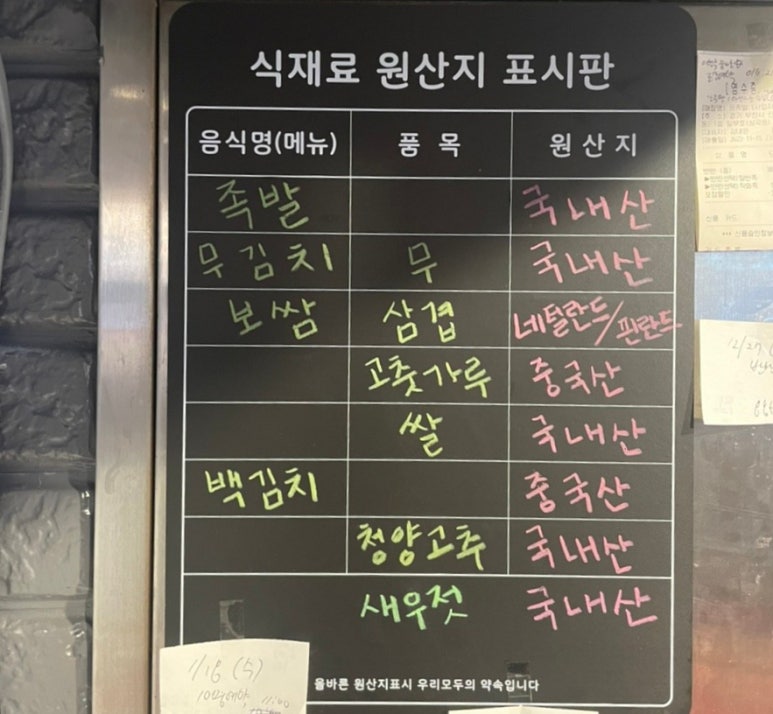 식재료 원산지 표시판
음식명(메뉴) 품 목 원 산 지
족발 국내산
무김치 무 국내산
보쌈 삼겹 네덜란드/핀란드
고춧가루 중국산
쌀 국내산
백김치 중국산
청양고추 국내산
새우젓 국내산
올바른 원산지표시 우리모두의 약속입니다
1/18 (5)
11:00
12/27
신용 카드